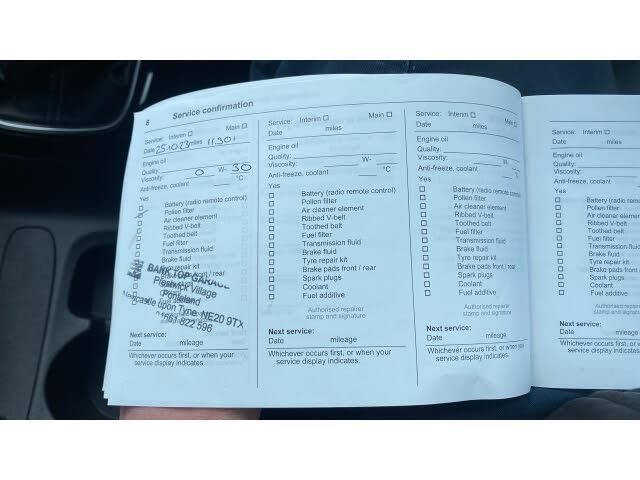 8
Service confirmation
Service: Interim Main
Date 25.10.23 miles 11,301
Engine oil
Quality:
Viscosity: 0 W- 30
Anti-freeze, coolant °C
Yes
Battery (radio remote control)
Pollen filter
Air cleaner element
Ribbed V-belt
Toothed belt
Fuel filter
Transmission fluid
Brake fluid
Tyre repair kit
BANK TOP GARAGE
Prestwick Village
Ponteland
Newcastle upon Tyne NE20 9TX
822 596
Next service:
Date mileage
Whichever occurs first, or when your
service display indicates.
Service: Interim Main
Date miles
Engine oil
Quality:
Viscosity: W-
Anti-freeze, coolant °C
Yes
Battery (radio remote control)
Pollen filter
Air cleaner element
Ribbed V-belt
Toothed belt
Fuel filter
Transmission fluid
Brake fluid
Tyre repair kit
Brake pads front / rear
Spark plugs
Coolant
Fuel additive
Authorised repairer
stamp and signature
Next service:
Date mileage
Whichever occurs first, or when your
service display indicates.
Service: Interim Main
Date miles
Engine oil
Quality:
Viscosity: W-
Anti-freeze, coolant °C
Yes
Battery (radio remote control)
Pollen filter
Air cleaner element
Ribbed V-belt
Toothed belt
Fuel filter
Transmission fluid
Brake fluid
Tyre repair kit
Brake pads front / rear
Spark plugs
Coolant
Fuel additive
Authorised repairer
stamp and signature
Next service:
Date mileage
Whichever occurs first, or when your
service display indicates.
Service: Interim
Date miles
Engine oil
Quality:
Viscosity:
Anti-freeze, coolant
Yes
Battery (radio
Pollen filter
Air cleaner
Ribbed V-belt
Toothed belt
Fuel filter
Transmission
Brake fluid
Tyre repair kit
Brake pads
Spark plugs
Coolant
Fuel additive
Next service:
Date
Whichever occurs
service display